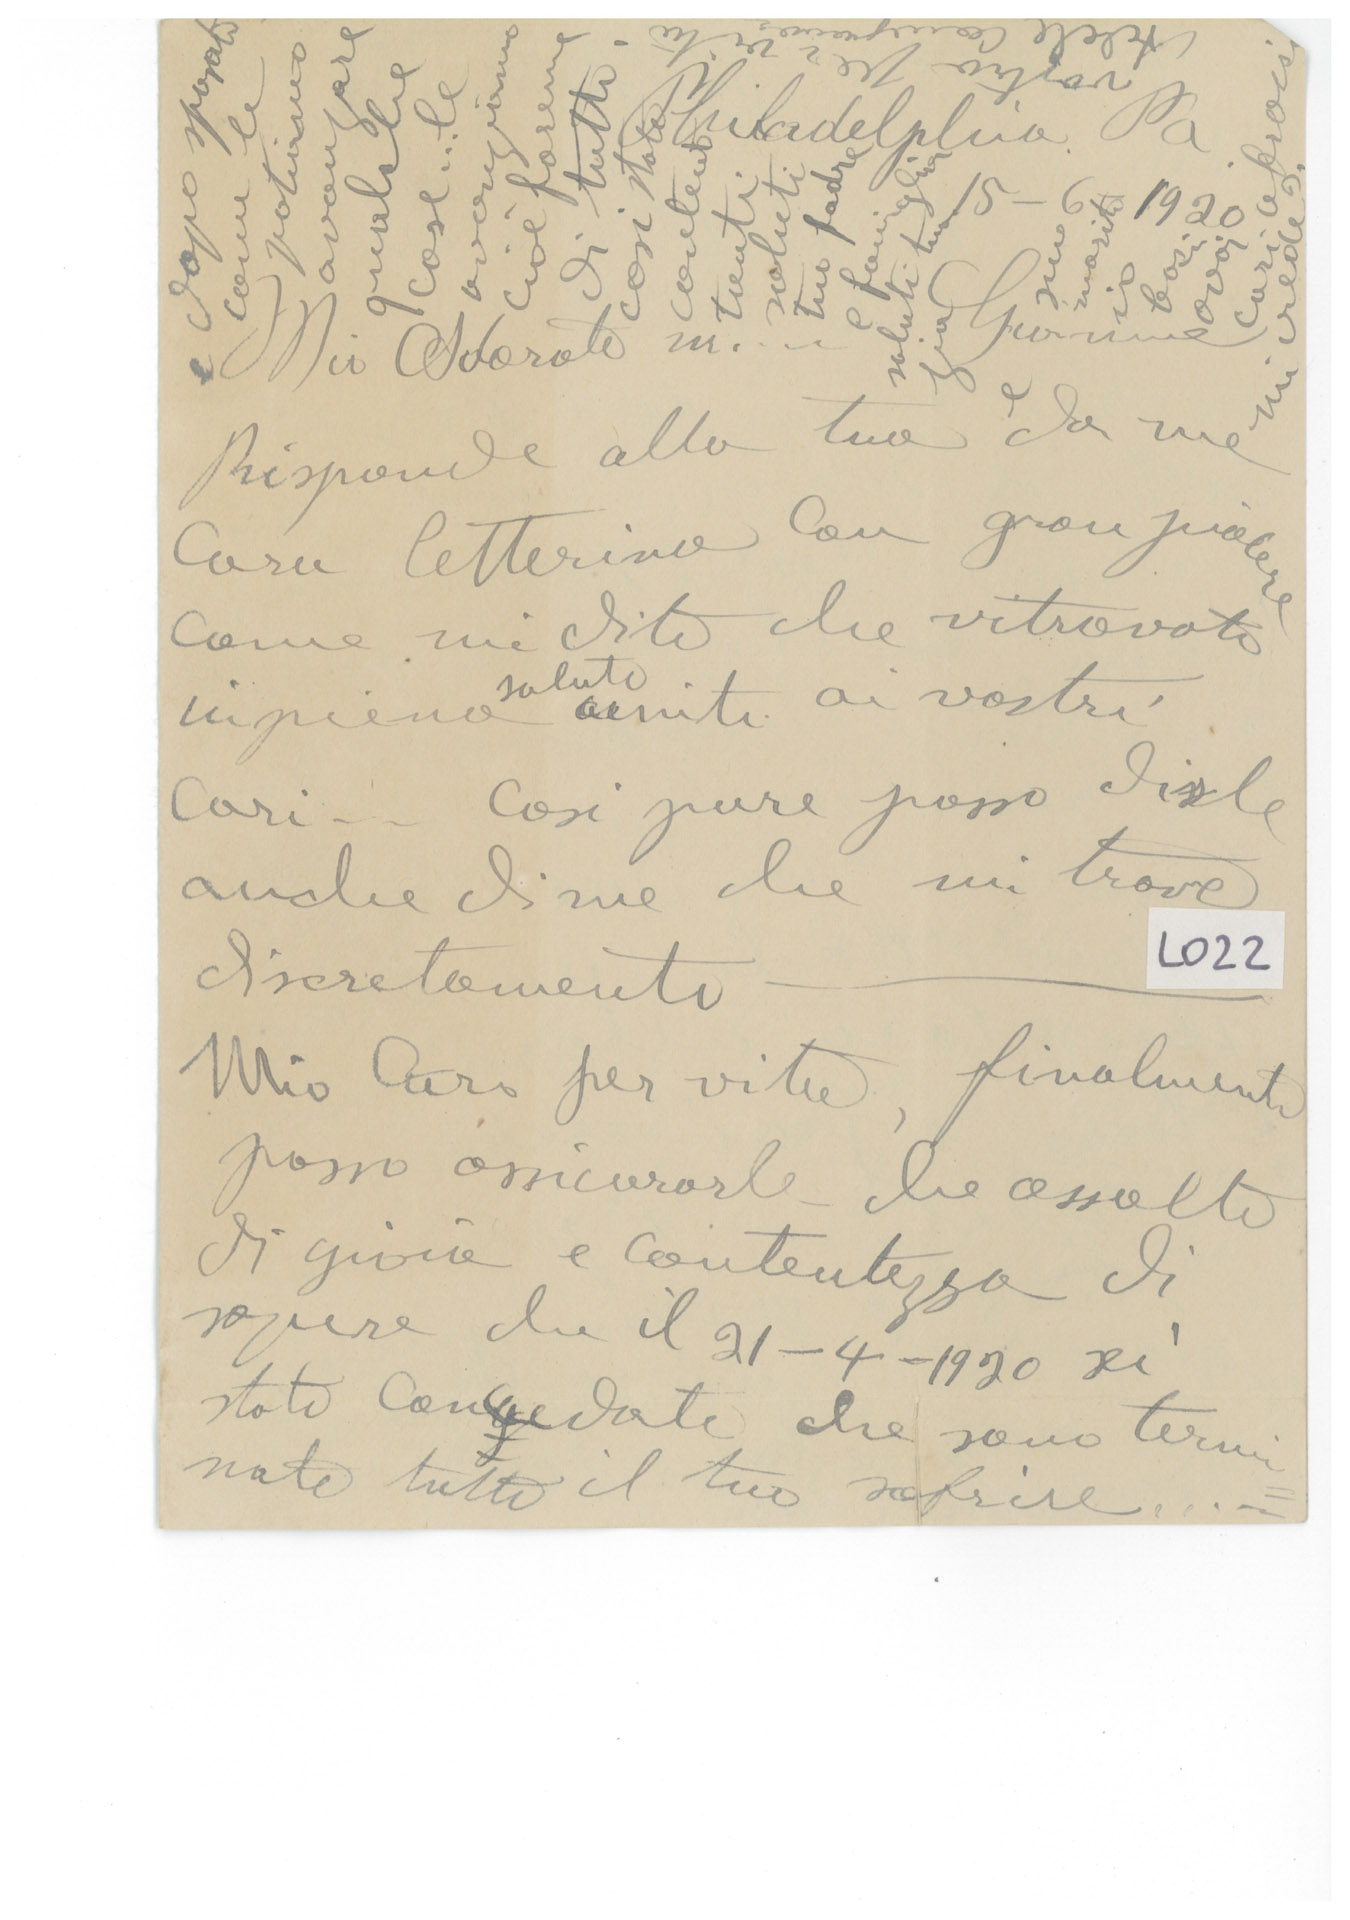 Philadelphia. Pa
15-6-1920
Mio Adorato m....
Risponde alla tua è da me
Cara letterina Con gran piacere
come mi dite che vitrovate
inpiena salute unite ai vostri
Cari -- Cosi pure posso dirle
anche di me che mi trove
discretamente
L022
Mio Caro per vita, finalmente
posso assicurarle che assalto
di gioia e contentezza di
sapere che il 21-4-1920 sei
stato Congedate che sono termi=
nate tutte il tuo sofrire....
e dopo sposate
come le
potiamo
avanzare
qualche
cose... le
avanziamo
cioè faremo
di tutti.
cosi state
contento
tienti
saluti
tuo padre
e famiglia
saluti tua
zia
suo
marito
io
baci
cari
mi vedi
vostra per vita
Adele